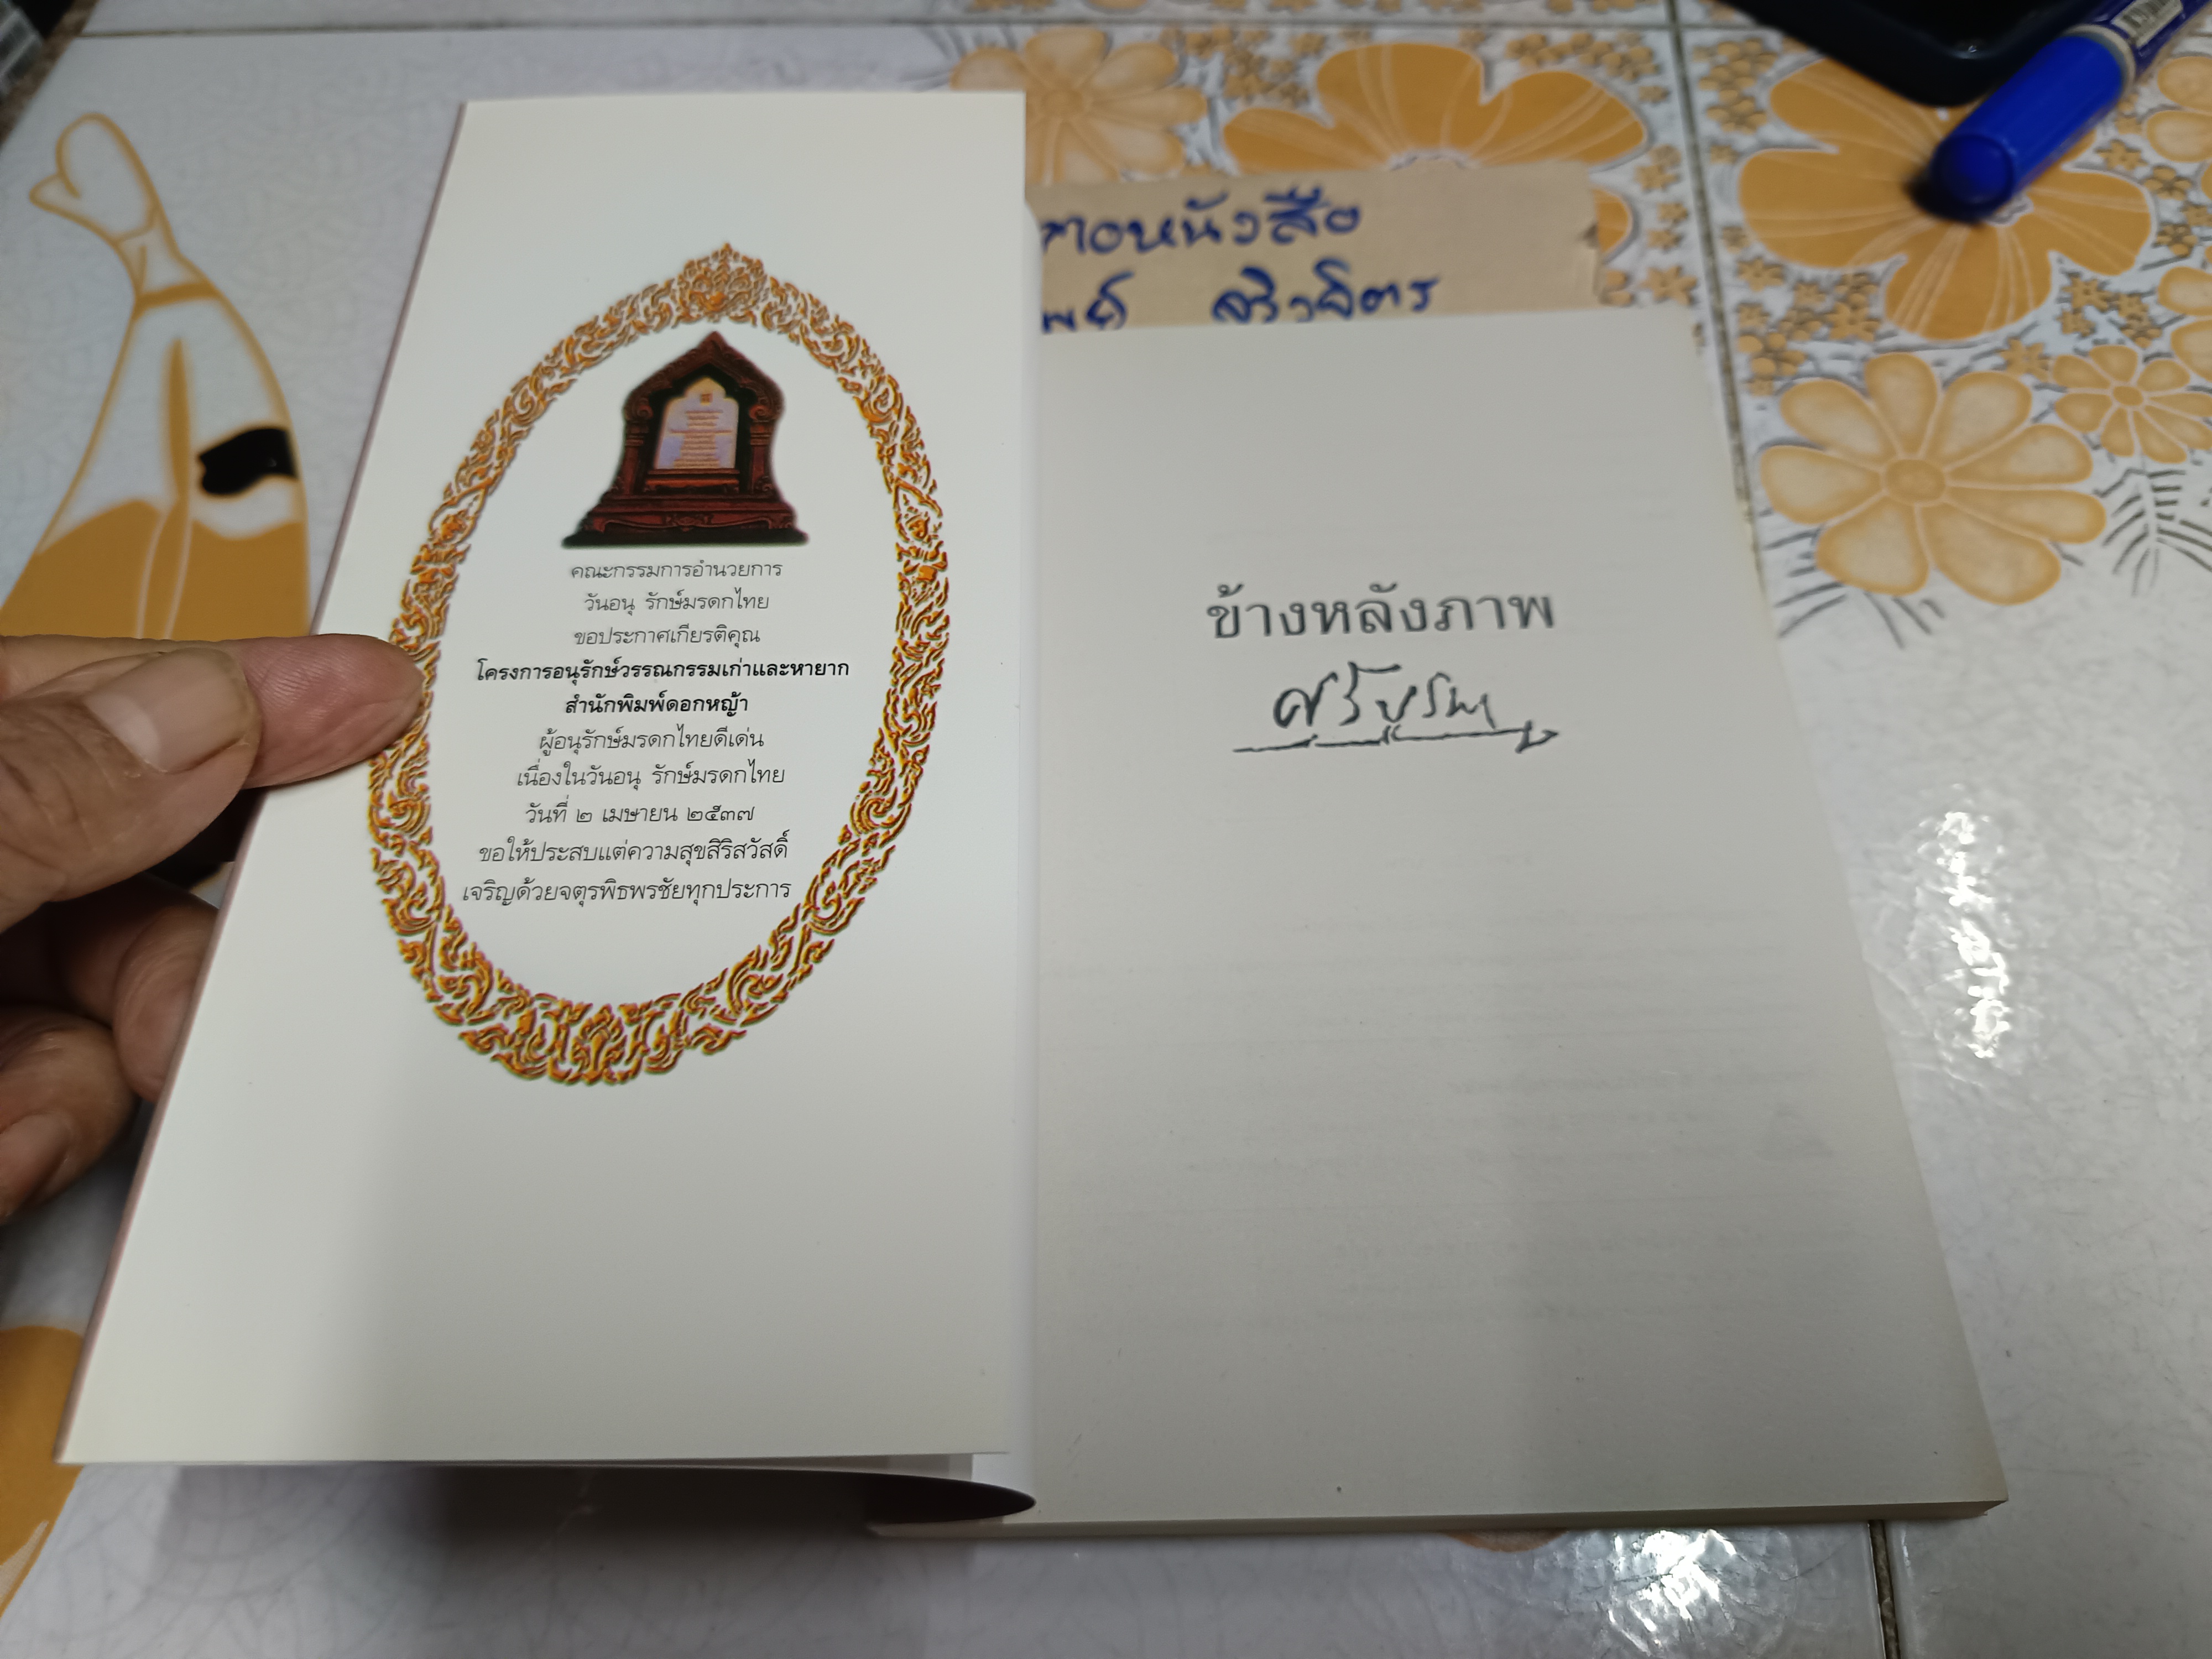 คณะกรรมการอำนวยการ
วันอนุ รักษ์มรดกไทย
ขอประกาศเกียรติคุณ
โครงการอนุรักษ์วรรณกรรมเก่าและหายาก
สำนักพิมพ์ดอกหญ้า
ผู้อนุรักษ์มรดกไทยดีเด่น
เนื่องในวันอนุ รักษ์มรดกไทย
วันที่ ๒ เมษายน ๒๕๓๗
ขอให้ประสบแต่ความสุขสิริสวัสดิ์
เจริญด้วยจตุรพิธพรชัยทุกประการ
หนังสือ
ข้างหลังภาพ
ศรีบูรพา